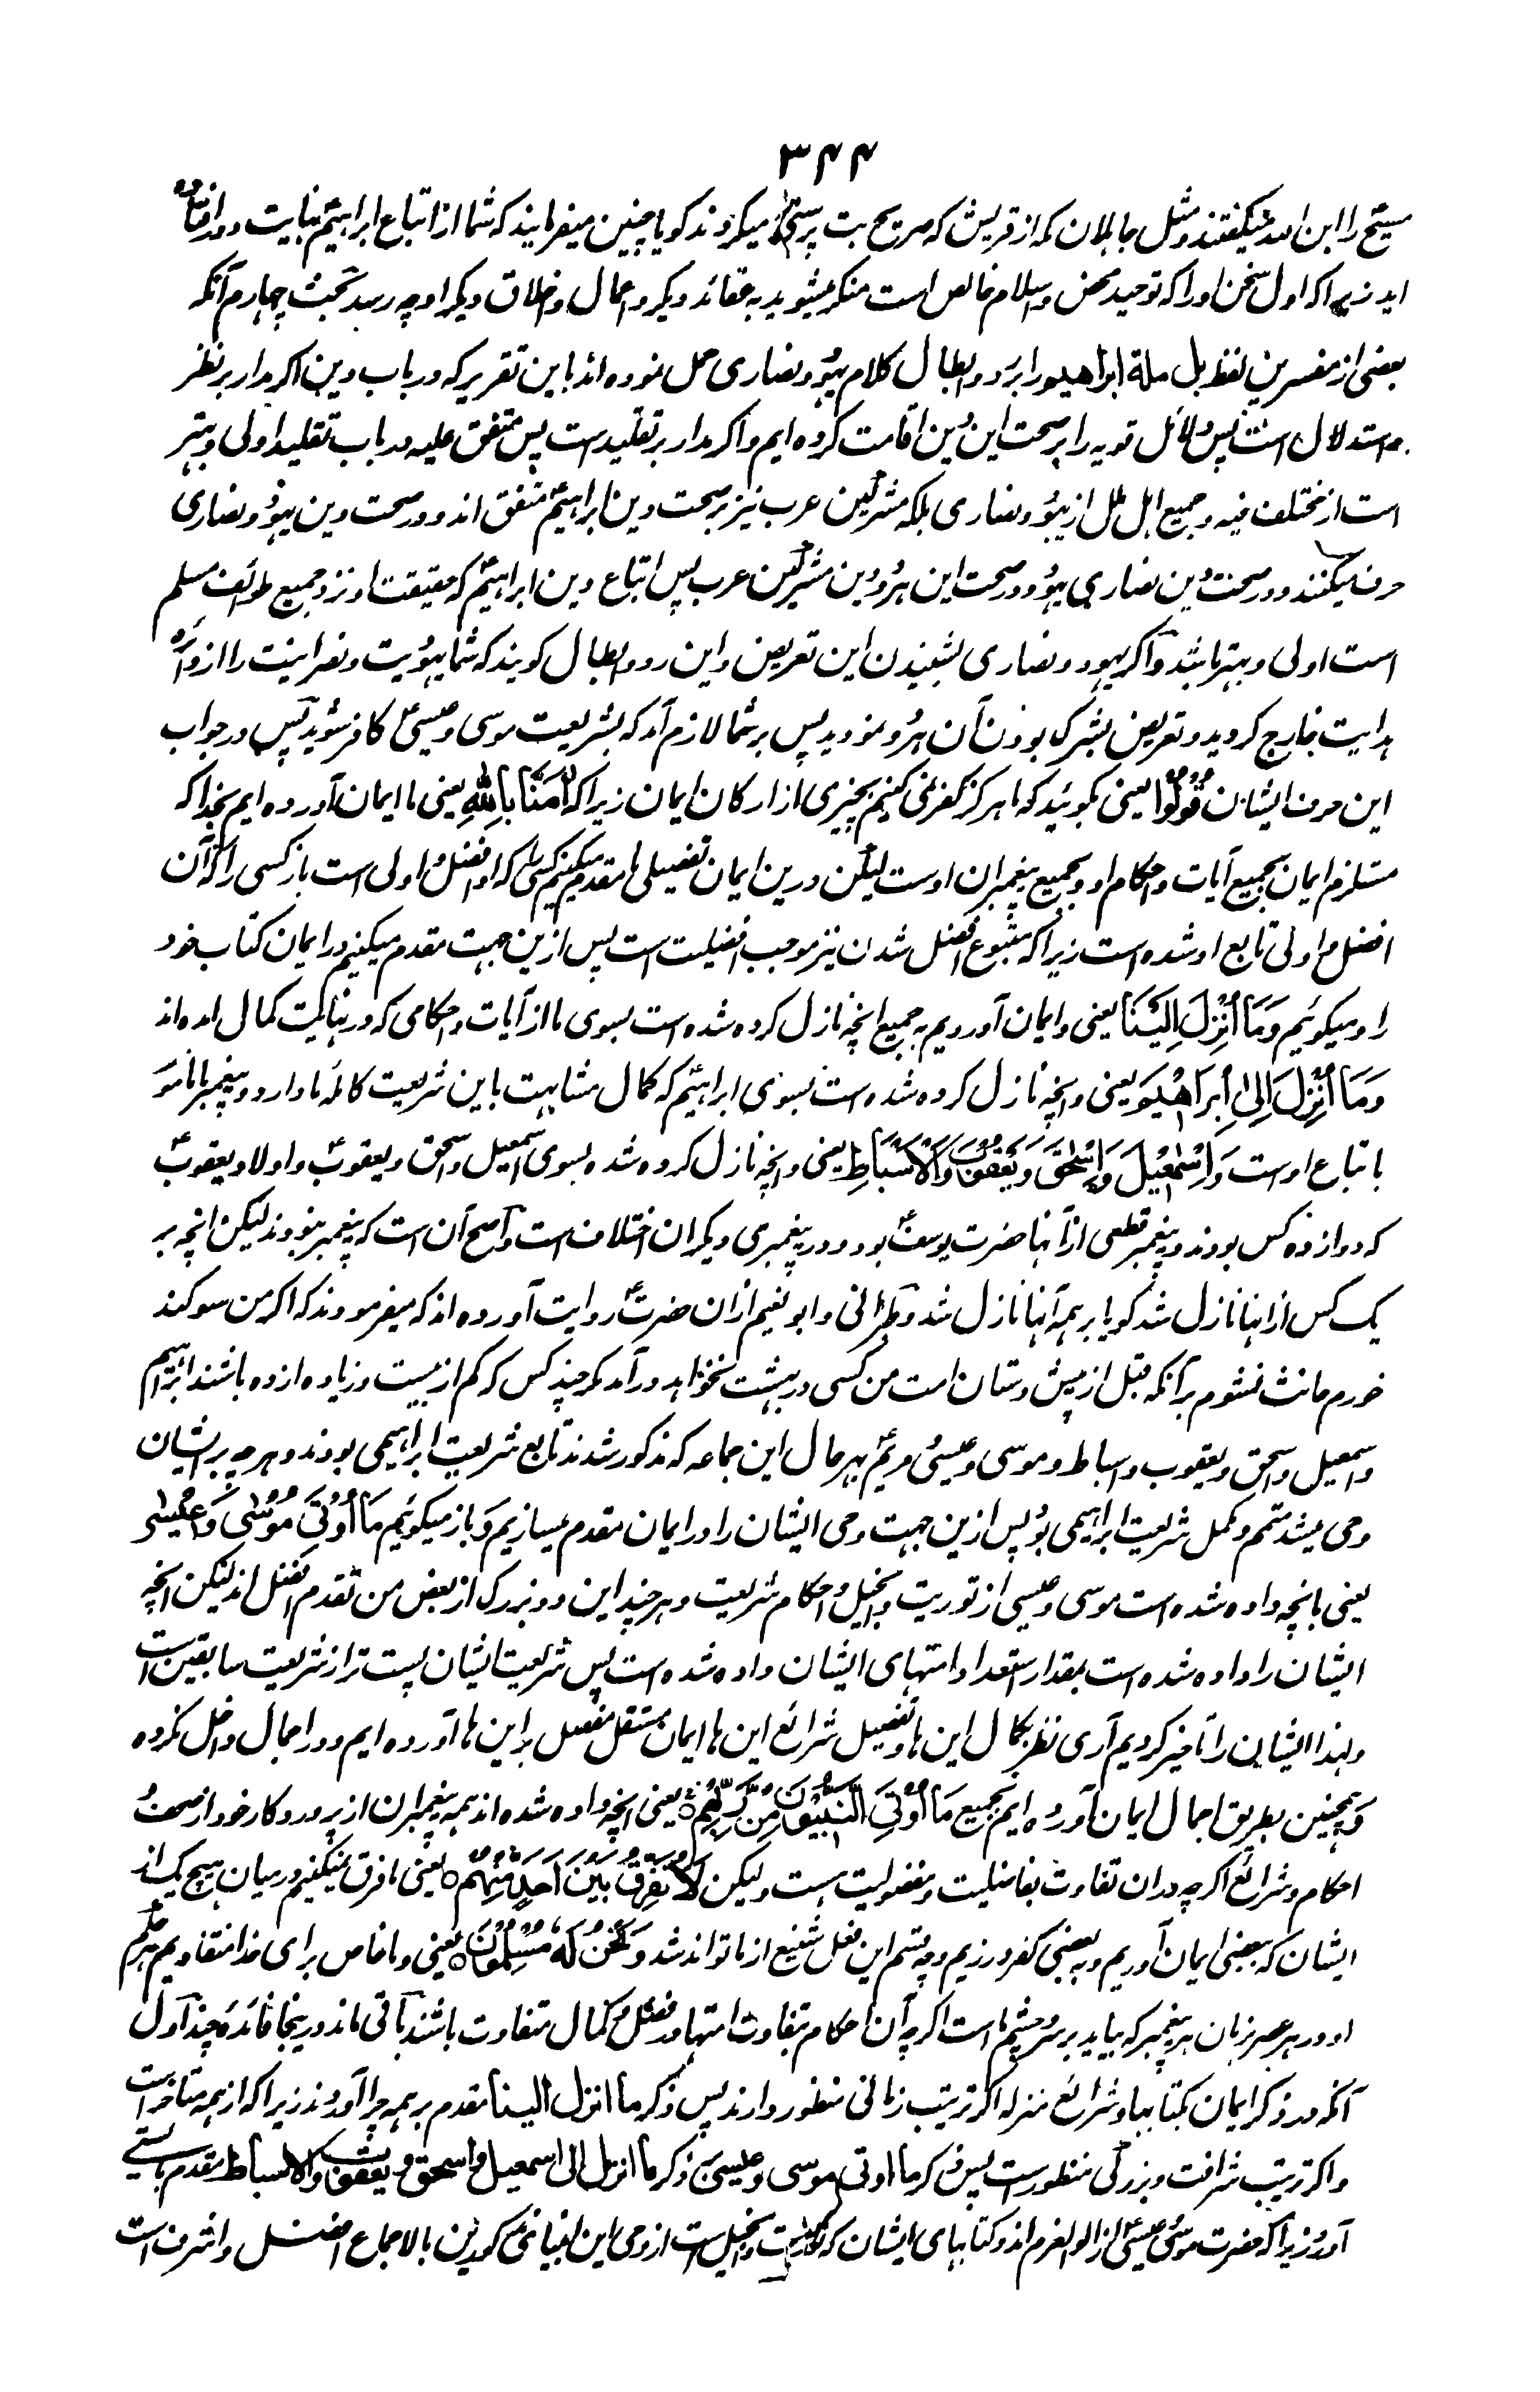 ۳۴۴
مسیح را ابن الله میگفتند و مثل جاهلان مکه از قریش که صریح بت پرستی میکردند گویا چنین میفرمایند که شما از اتباع ابراهیمؑ بنهایت دور افتاده
اید زیرا که اول سخن او را که توحید محض و اسلام خالص است منکر میشوید به عقائد دیگر و اعمال و اخلاق دیگر او چه رسد بحث چهارم آنکه
بعضی از مفسرین لفظ بل ملة ابراهیم را بر رد و ابطال کلام یهود و نصاری حمل نموده اند باین تقریر که در باب دین اگر مدار بر نظر
و استدلال است پس دلائل قویه را بر صحت این دین اقامت کرده ایم و اگر مدار بر تقلید است پس متفق علیه در باب تقلید اولی و بهتر
است از مختلف فیه و جمیع اهل ملل از یهود و نصاری بلکه مشرکین عرب نیز بر صحت دین ابراهیمؑ متفق اند و در صحت دین یهود نصاری
حرف میکنند و در صحت دین نصاری یهود و در صحت این هر دو دین مشرکین عرب پس اتباع دین ابراهیمؑ که حقیقت او نزد جمیع طوائف مسلم
است اولی و بهتر باشد و اگر یهود و نصاری بشنیدن این تعریض و این رد و ابطال گویند که شما یهودیت و نصرانیت را از دائره
هدایت خارج کردید و تعریض بشرک بودن آن هر دو نمودید پس بر شما لازم آمد که بشریعت موسی و عیسیؑ کافر شوید پس در جواب
این حرف ایشان قُولُوا یعنی بگوئید که ما هرگز کفر نمی کنیم بچیزی از ارکان ایمان زیرا که اٰمَنَّا بِاللّٰهِ یعنی ما ایمان آورده ایم بخدا که
مستلزم ایمان بجمیع آیات و احکام او و بجمیع پیغمبران اوست لیکن درین ایمان تفصیلی ما مقدم میکنیم کسی را که او افضل و اولی است باز کسی را که آن
افضل و اولی تابع او شده است زیرا که متبوع افضل شدن نیز موجب افضلیت است پس ازین جهت مقدم میکنیم در ایمان کتاب خود
را و میگوئیم وَمَا أُنْزِلَ إِلَيْنَا یعنی و ایمان آوردیم به جمیع انچه نازل کرده شده است بسوی ما از آیات و احکامی که در نهایت کمال اند
وَمَا أُنْزِلَ إِلَىٰ إِبْرَاهِيمَ یعنی و انچه نازل کرده شده است بسوی ابراهیمؑ که کمال مشابهت باین شریعت کامله ما دارد و پیغمبر ما مامور
باتباع اوست وَإِسْمٰعِيلَ وَإِسْحٰقَ وَيَعْقُوبَ وَالْأَسْبَاطِ یعنی و انچه نازل کرده شده بسوی اسمعیل و اسحق و یعقوبؑ و اولاد یعقوبؑ
که دوازده کس بودند و پیغمبر قطعی از آنها حضرت یوسفؑ بود و در پیغمبری دیگران اختلاف است و اصح آن است که پیغمبر نبودند لیکن انچه بر
یک کس از انها نازل شد گویا بر همه آنها نازل شد و طبرانی و ابو نعیم از ان حضرتؐ روایت آورده اند که میفرمودند که اگر من سوگند
خورم حانث نشوم بر آنکه قبل از پیش دستان امت من کسی در بهشت نخواهد در آمد مگر چند کس که کم از بیست و زیاده از ده باشند ابراهیم
و اسمعیل و اسحق و یعقوب و اسباط و موسی و عیسی و مریمؑ بهر حال این جماعه که مذکور شدند تابع شریعت ابراهیمی بودند و هر چه بر ایشان
وحی میشد متمم و مکمل شریعت ابراهیمی بود پس ازین جهت وحی ایشان را در ایمان مقدم میسازیم و باز میگوئیم مَا أُوتِيَ مُوسٰى وَعِيسٰى
یعنی بانچه داده شده است موسی و عیسی از توریت و انجیل و احکام شریعت و هر چند این دو بزرگ از بعض من تقدم افضل اند لیکن انچه
ایشان را داده شده است بمقدار استعداد امتهای ایشان داده شده است پس شریعت ایشان پست تر از شریعت سابقین است
و لهذا ایشان را تاخیر کردیم آری نظر بکمال این ها و تفصیل شرائع این ها ایمان مستقل مفصل بر این ها آورده ایم و در اجمال داخل نکرده
و همچنین بطریق اجمال ایمان آورده ایم بجمیع مَا أُوتِيَ النَّبِيُّونَ مِنْ رَبِّهِمْ یعنی انچه داده شده اند همه پیغمبران از پروردگار خود از صحف
احکام و شرائع اگر چه در ان تفاوت بفاضلیت و مفضولیت هست ولیکن لَا نُفَرِّقُ بَيْنَ أَحَدٍ مِنْهُمْ یعنی ما فرق نمیکنیم در میان هیچ یک از
ایشان که ببعضی ایمان آوریم و به بعضی کفر ورزیم و چه قسم این فعل شنیع از ما تواند شد وَنَحْنُ لَهُ مُسْلِمُونَ یعنی و ما خاص برای خدا منقادیم هر حکم
او در هر عصر بزبان هر پیغمبر که بیاید بر سر و چشم ماست اگر چه آن احکام بتفاوت امتها در فضل و کمال متفاوت باشند باقی ماند درینجا فائده چند اول
آنکه در ذکر ایمان بکتابها و شرائع منزله اگر ترتیب زمانی منظور دارند پس ذکر ما انزل الینا مقدم بر همه چرا آوردند زیرا که از همه متاخر است
و اگر ترتیب شرافت و بزرگی منظور است پس ذکر ما اوتی موسی و عیسی بر ذکر ما انزل الی اسمعیل و اسحق و یعقوب والاسباط مقدم بایستی
آورد زیرا که حضرت موسیؑ و عیسیؑ از اولو العزم اند و کتابهای ایشان که توریت و انجیل است از وحی این انبیا بالاجماع افضل و اشرف است